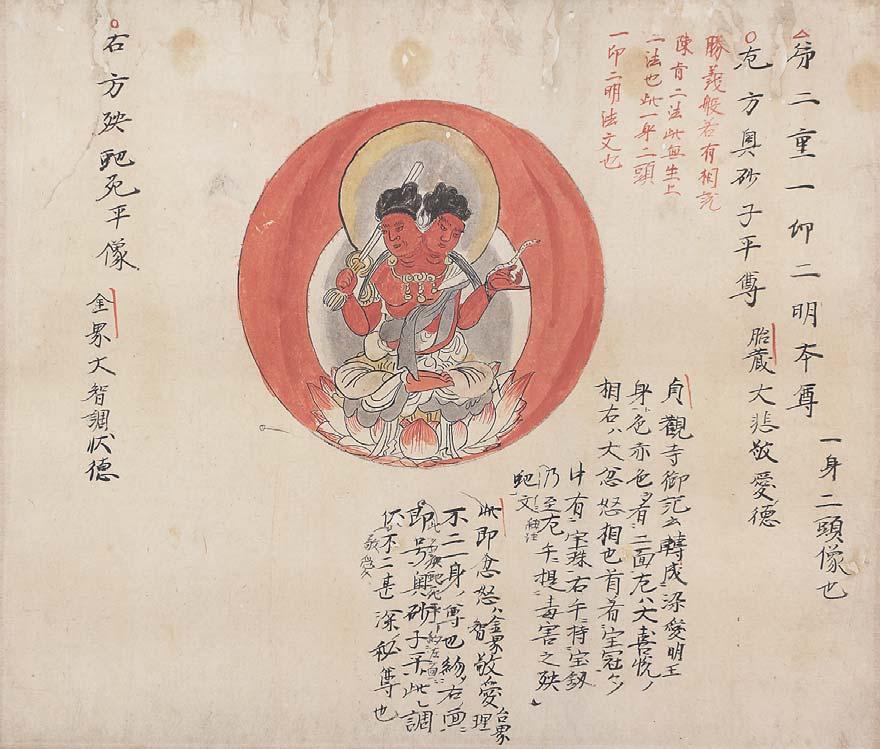 第二重一仰二明本尊
一身二頭像也
左方奥砂子平尊
胎蔵大悲敬愛徳
勝義般若有相説
陳有二法此無生上
二法也此一身二頭
一印二明法文也
貞觀寺御記云轉成染愛明王
身色赤色着二面左ハ大喜悦ノ
相右ハ大忿怒相也首着宝冠々
中有宝珠右手持宝釼
乃至左手提毒害之
此即忿怒ハ金界智敬愛ハ台界理
不二身ノ尊也
即号奥砂子平此調
伏不二甚深秘尊也
敬愛
右方殃𮝻死平像
金界大智調伏徳